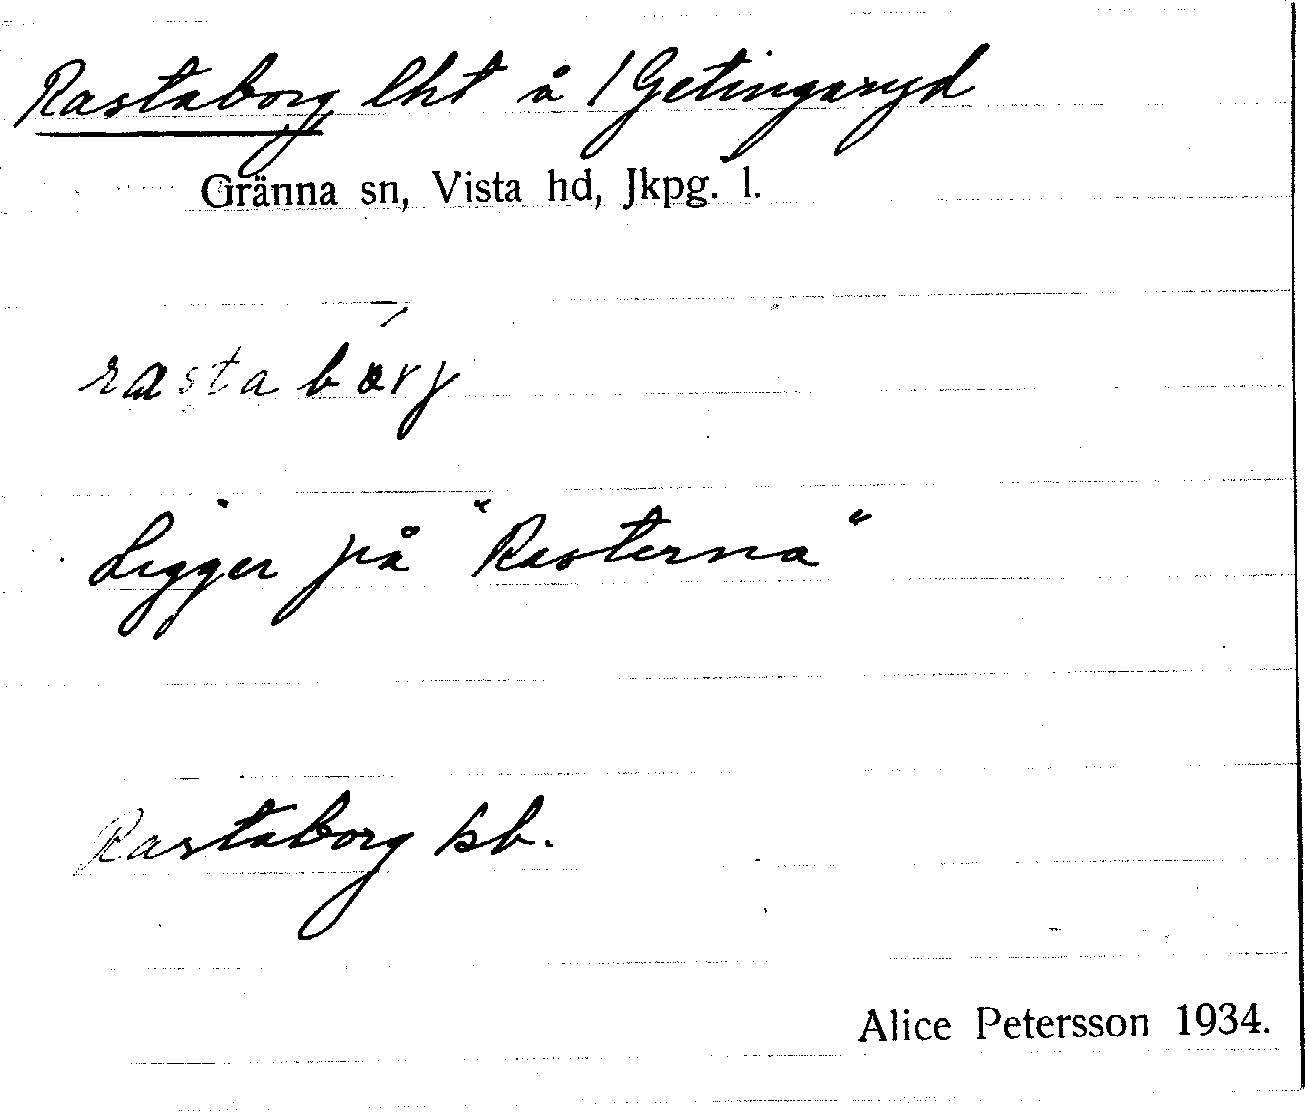 Rastaborg, lht å / Getingaryd
Gränna sn, Vista hd, Jkpg. l.
Ligger på "Rasterna"
Rastaborg kb.
Alice Petersson 1934.